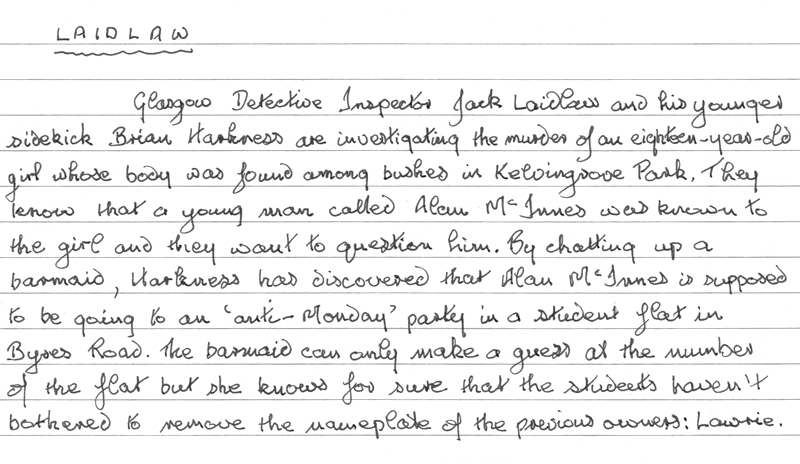 LAIDLAW
Glasgow Detective Inspector Jack Laidlaw and his younger
sidekick Brian Harkness are investigating the murder of an eighteen-year-old
girl whose body was found among bushes in Kelvingrove Park. They
know that a young man called Alan McInnes was known to
the girl and they want to question him. By chatting up a
barmaid, Harkness has discovered that Alan McInnes is supposed
to be going to an 'anti-Monday' party in a student flat in
Byres Road. The barmaid can only make a guess at the number
of the flat but she knows for sure that the students haven't
bothered to remove the nameplate of the previous owners: Lawrie.